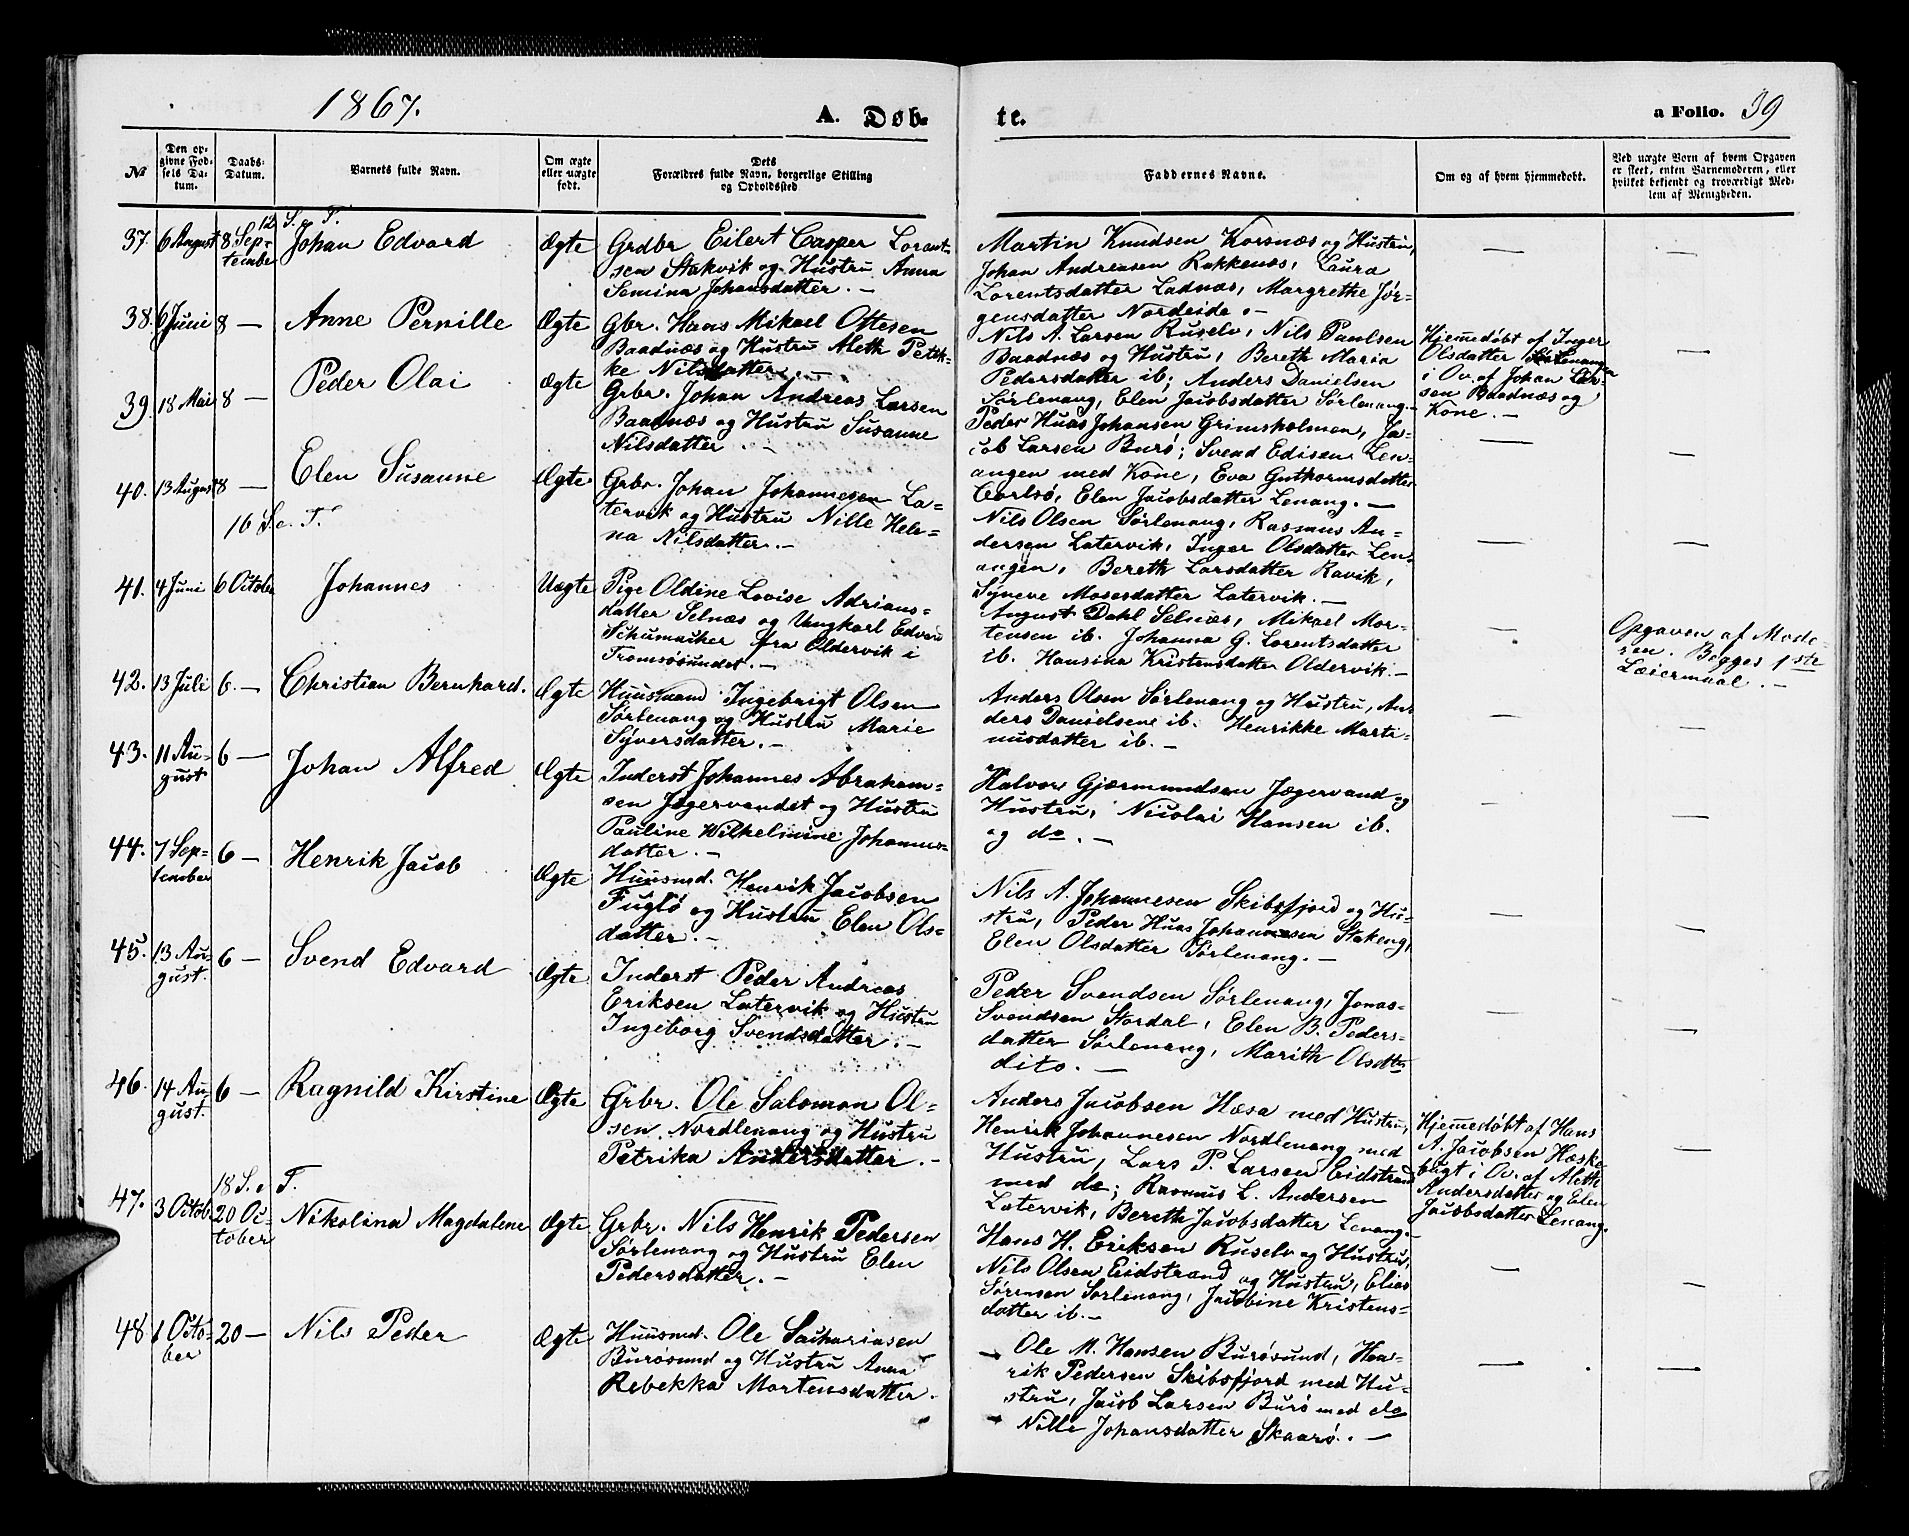 1867.
A. Døb-
te.
a Folio. 39
No
Den op-
givne Fød-
sels Da-
tum.
Daabs-
Datum.
Barnets fulde Navn.
Om ægte
eller uægte
født.
Dets
Forældres fulde Navn, borgerlige Stilling
og Opholdssted.
Faddernes Navne.
Om og af hvem hjemmedøbt.
Ved uægte Born af hvem Opgaven
er skeet, enten Barnemoderen, eller
hvilket bekjendt og troværdigt Med-
lem af Menigheden.
12 S. e. T.
37. 6 August 8 Sep-
tember
Johan Edvard
Ægte
Grdbr Eilert Casper Lorent-
sen Stakvik og Hustru Anna
Semina Johansdatter. —
Martin Knudsen Korsnæs og Hustru,
Johan Andreasen Rakkenæs, Laura
Lorentsdatter Ladnæs, Margrethe Jør-
gensdatter Nordeide. —
—
—
38. 6 Juni 8 —
Anne Pernille
Ægte
Gbr. Hans Mikael Ottesen
Baadnæs og Hustru Aleth Petrik-
ke Nilsdatter. —
Nils A. Larsen Ruselv, Nils Paulsen
Baadnæs og Hustru, Bereth Maria
Pedersdatter ib; Anders Danielsen
Sørlenang, Elen Jacobsdatter Sørlenang. —
Hjemmedøbt af Inger
Olsdatter Sørlenangen
i Ov. af Johan Lar-
sen Baadnæs og
Kone. —
—
39. 18 Mai 8 —
Peder Olai
Ægte
Grbr. Johan Andreas Larsen
Baadnæs og Hustru Susanne
Nilsdatter. —
Peder Huas Johansen Grimsholmen, Ja-
cob Larsen Burø; Svend Edisen Len-
angen med Kone, Eva Guthormsdatter
Carlsø, Elen Jacobsdatter Lenang. —
—
—
40. 13 August 8 —
Elen Susanne
Ægte
Grbr. Johan Johannesen La-
tervik og Hustru Nille Hele-
na Nilsdatter. —
Nils Olsen Sørlenang, Rasmus An-
dersen Latervik, Inger Olsdatter Len-
angen, Bereth Larsdatter Ravik,
Syneve Mosesdatter Latervik. —
—
—
16 S. e. T.
41. 4 Juni 6 October
Johannes
Uægte
Pige Oldine Lovise Adrians-
datter Selnæs og Ungkarl Edvard
Schumacher fra Oldervik i
Tromsøsundet. —
August Dahl Selnæs, Mikael Mor-
tensen ib. Johanna G. Lorentsdatter
ib. Hansina Kristensdatter Oldervik. —
—
Opgaven af Mode-
ren. Begges 1ste
Leiermaal. —
42. 13 Juli 6. —
Christian Bernhard.
Ægte
Huusmand Ingebrigt Olsen
Sørlenang og Hustru Marie
Syversdatter. —
Anders Olsen Sørlenang og Hustru, An-
ders Danielsen ib. Henrikke Marti-
nusdatter ib. —
—
—
43. 11 Au-
gust 6 —
Johan Alfred
Ægte
Inderst Johannes Abraham-
sen Jægervandet og Hustru
Pauline Wilhelmine Johannes-
datter. —
Halvor Gjærmundsen Jægervand og
Hustru, Nicolai Hansen ib.
og do. —
—
—
44. 7 Sep-
tember 6 —
Henrik Jacob
Ægte
Huusmd. Henrik Jacobsen
Fuglø og Hustru Elen Ols-
datter. —
Nils A. Johannesen Skibsfjord og Hu-
stru, Peder Huas Johannesen Stakeng,
Elen Olsdatter Sørlenang. —
—
—
45. 13 Au-
gust. 6 —
Svend Edvard
Ægte
Inderst Peder Andreas
Eriksen Latervik og Hustru
Ingeborg Svendsdatter. —
Peder Svendsen Sørlenang, Jonas
Svendsen Stordal, Elen B. Peders-
datter Sørlenang, Marith Olsdtr
dito. —
—
—
46. 14 Au-
gust. 6 —
Ragnild Kirstine
Ægte
Grbr. Ole Salomon Ol-
sen Nordlenang og Hustru
Petrika Andersdatter. —
Anders Jacobsen Hæsa med Hustru,
Henrik Johannesen Nordlenang med
Hustru, Lars P. Larsen Eidstrand
med do; Rasmus L. Andersen
Latervik, Bereth Jacobsdatter Lenang. —
Hjemmedøbt af Hans
A. Jacobsen Hæske-
bugt i Ov. af Aleth
Andersdatter og Elen
Jacobsdatter Lenang.
—
18 S. e T.
47. 3 Octob. 20 Oc-
tober
Nikolina Magdalene
Ægte
Grbr. Nils Henrik Pedersen
Sørlenang og Hustru Elen
Pedersdatter. —
Hans H. Eriksen Ruselv og Hustru,
Nils Olsen Eidstrand og Hustru, Elias
Sørensen Sørlenang, Jacobine Kristens-
datter ib. —
—
—
48. 1 Octo-
ber 20 —
Nils Peder
Ægte
Huusmd. Ole Sachariasen
Burøsund og Hustru Anna
Rebekka Mortensdatter.
Ole M. Hansen Burøsund, Hen-
rik Pedersen Skibsfjord med Hu-
stru, Jacob Larsen Burø med do
Nille Johansdatter Skaarø. —
—
—